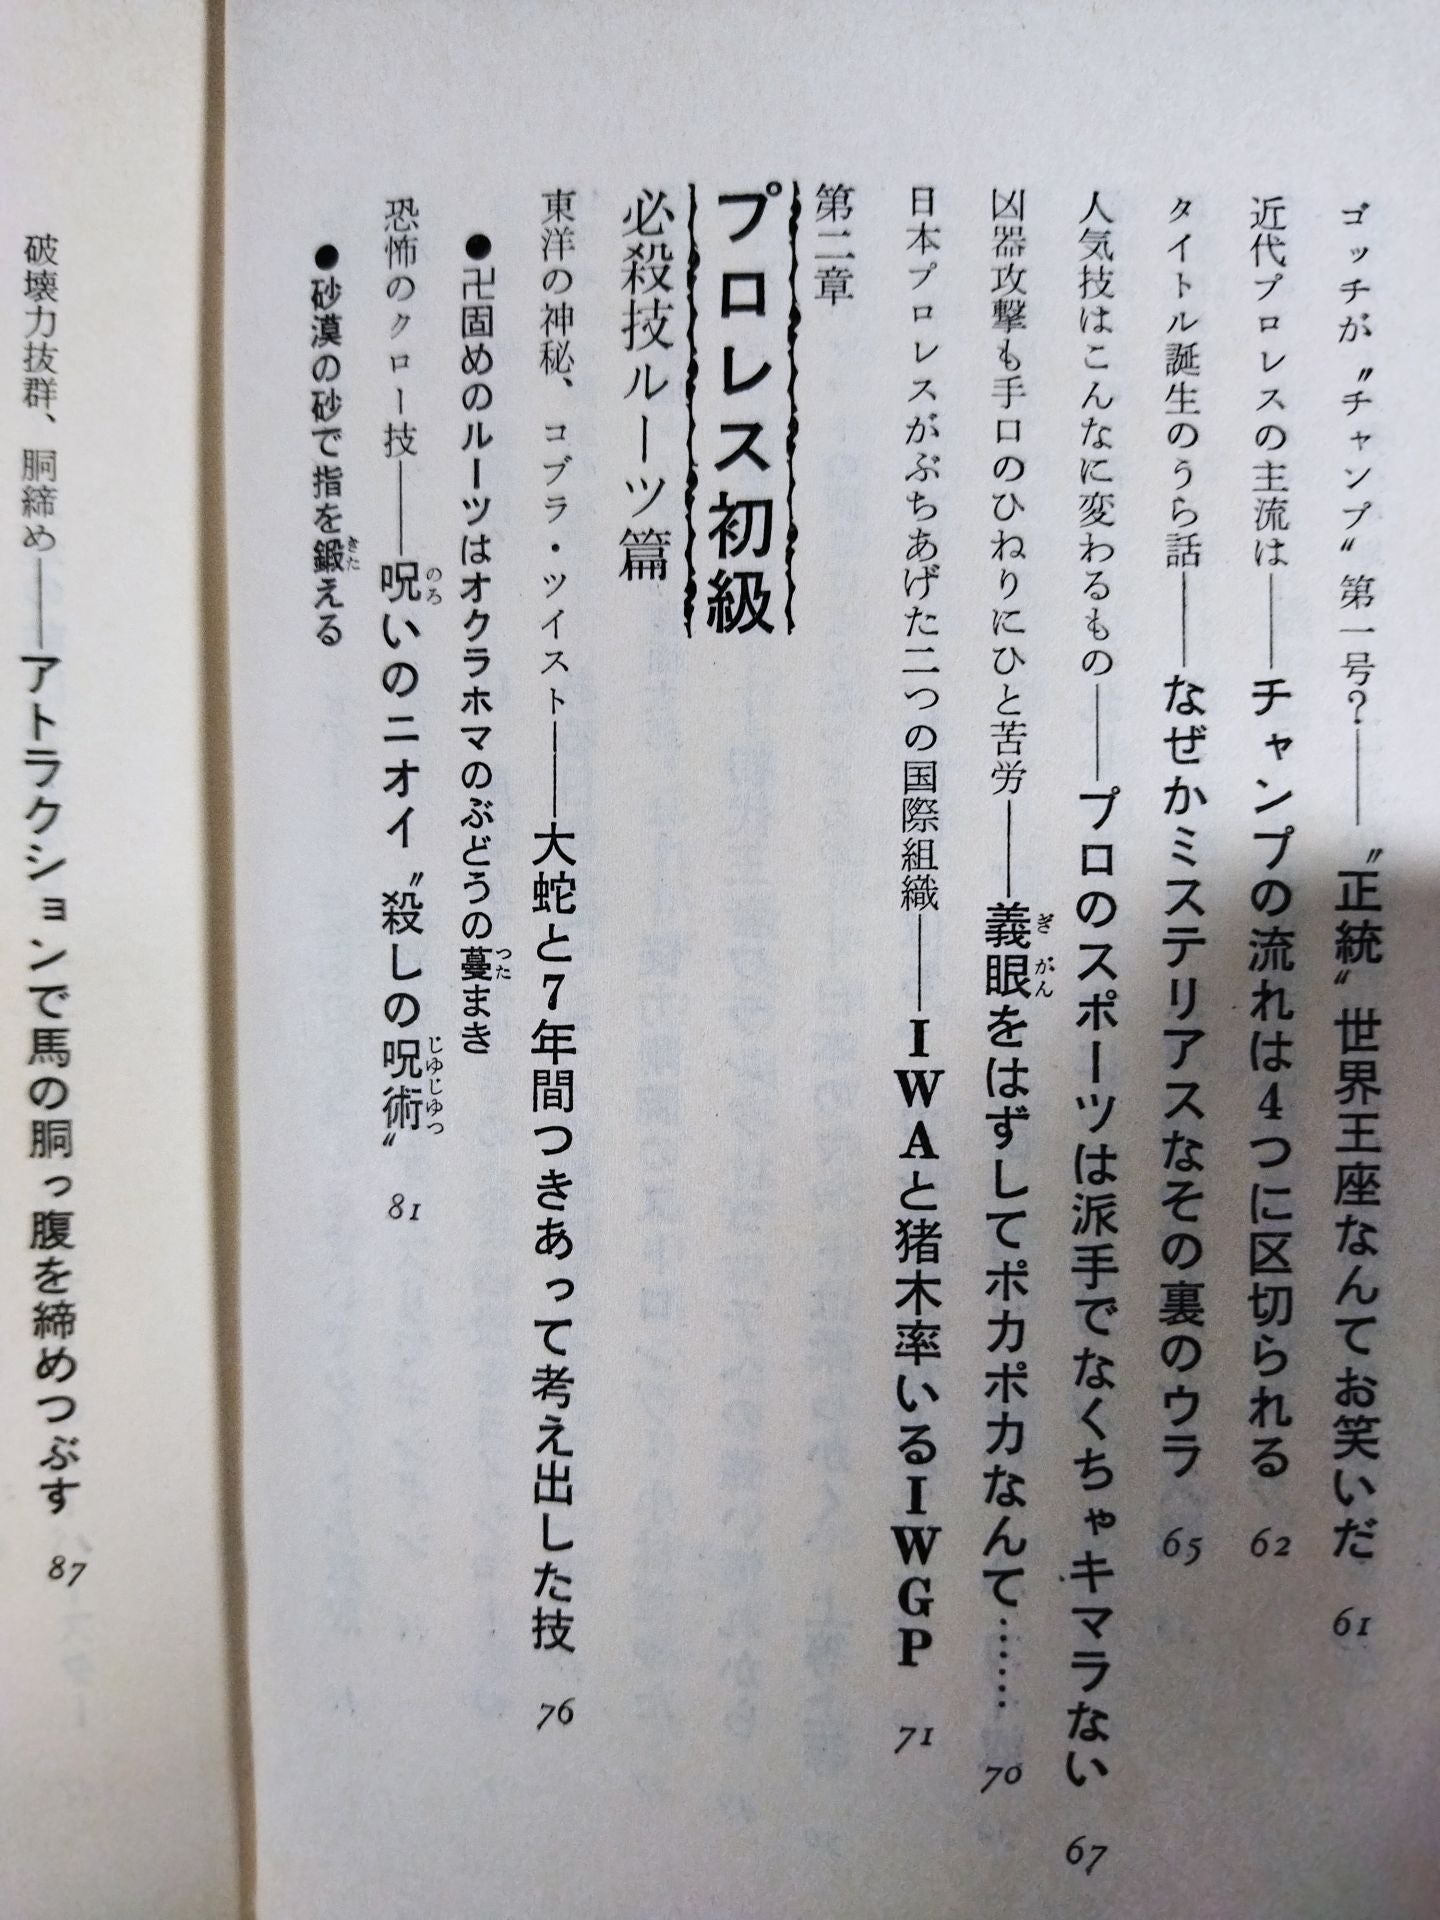 ゴッチが〝チャンプ〟第一号?――〝正統〟世界王座なんてお笑いだ 61
近代プロレスの主流は――チャンプの流れは4つに区切られる 62
タイトル誕生のうら話――なぜかミステリアスなその裏のウラ 65
人気技はこんなに変わるもの――プロのスポーツは派手でなくちゃキマラない 67
凶器攻撃も手口のひねりにひと苦労――義眼をはずしてポカポカなんて…… 70
ぎがん
日本プロレスがぶちあげた二つの国際組織――IWAと猪木率いるIWGP 71
第二章
プロレス初級
必殺技ルーツ篇
東洋の神秘、コブラ・ツイスト――大蛇と7年間つきあって考え出した技 76
●卍固めのルーツはオクラホマのぶどうの蔓まき
つた
恐怖のクロー技――呪いのニオイ〝殺しの呪術〟 81
のろ
じゆじゆつ
●砂漠の砂で指を鍛える
きた
破壊力抜群、胴締め――アトラクションで馬の胴っ腹を締めつぶす 87